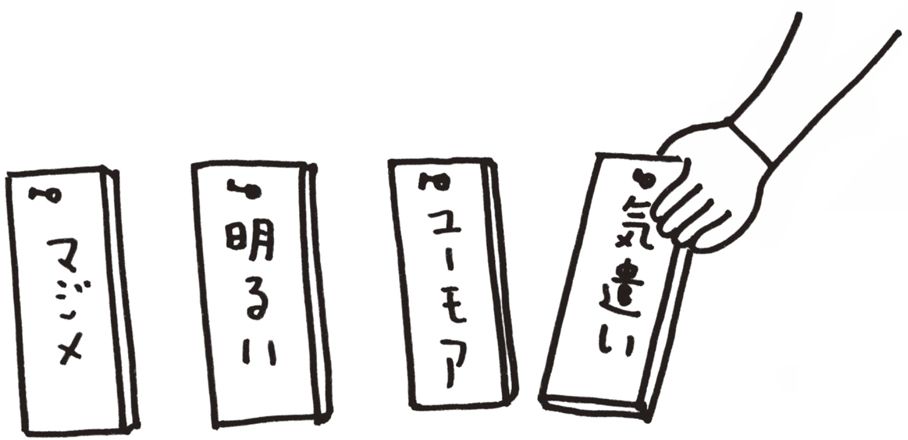 マジメ
明るい
ユーモア
気遣い